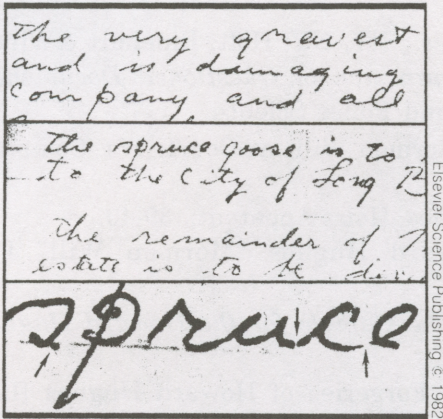 the very gravest
and is damaging
company and all
the spruce goose is to
to the City of Long B
the remainder of
estate is to be
spruce
Elsevier Science Publishing © 1982